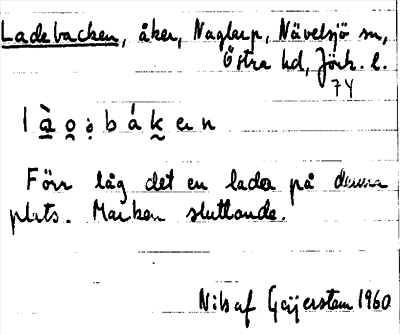 Ladebacken, åker, Naglarp, Nävelsjö sn,
Östra hd, Jönk. l.
74
l à̱ o̰ ọ b á k̰ e n
Förr låg det en lada på denna
plats. Marken sluttande.
Nils af Geijerstam 1960